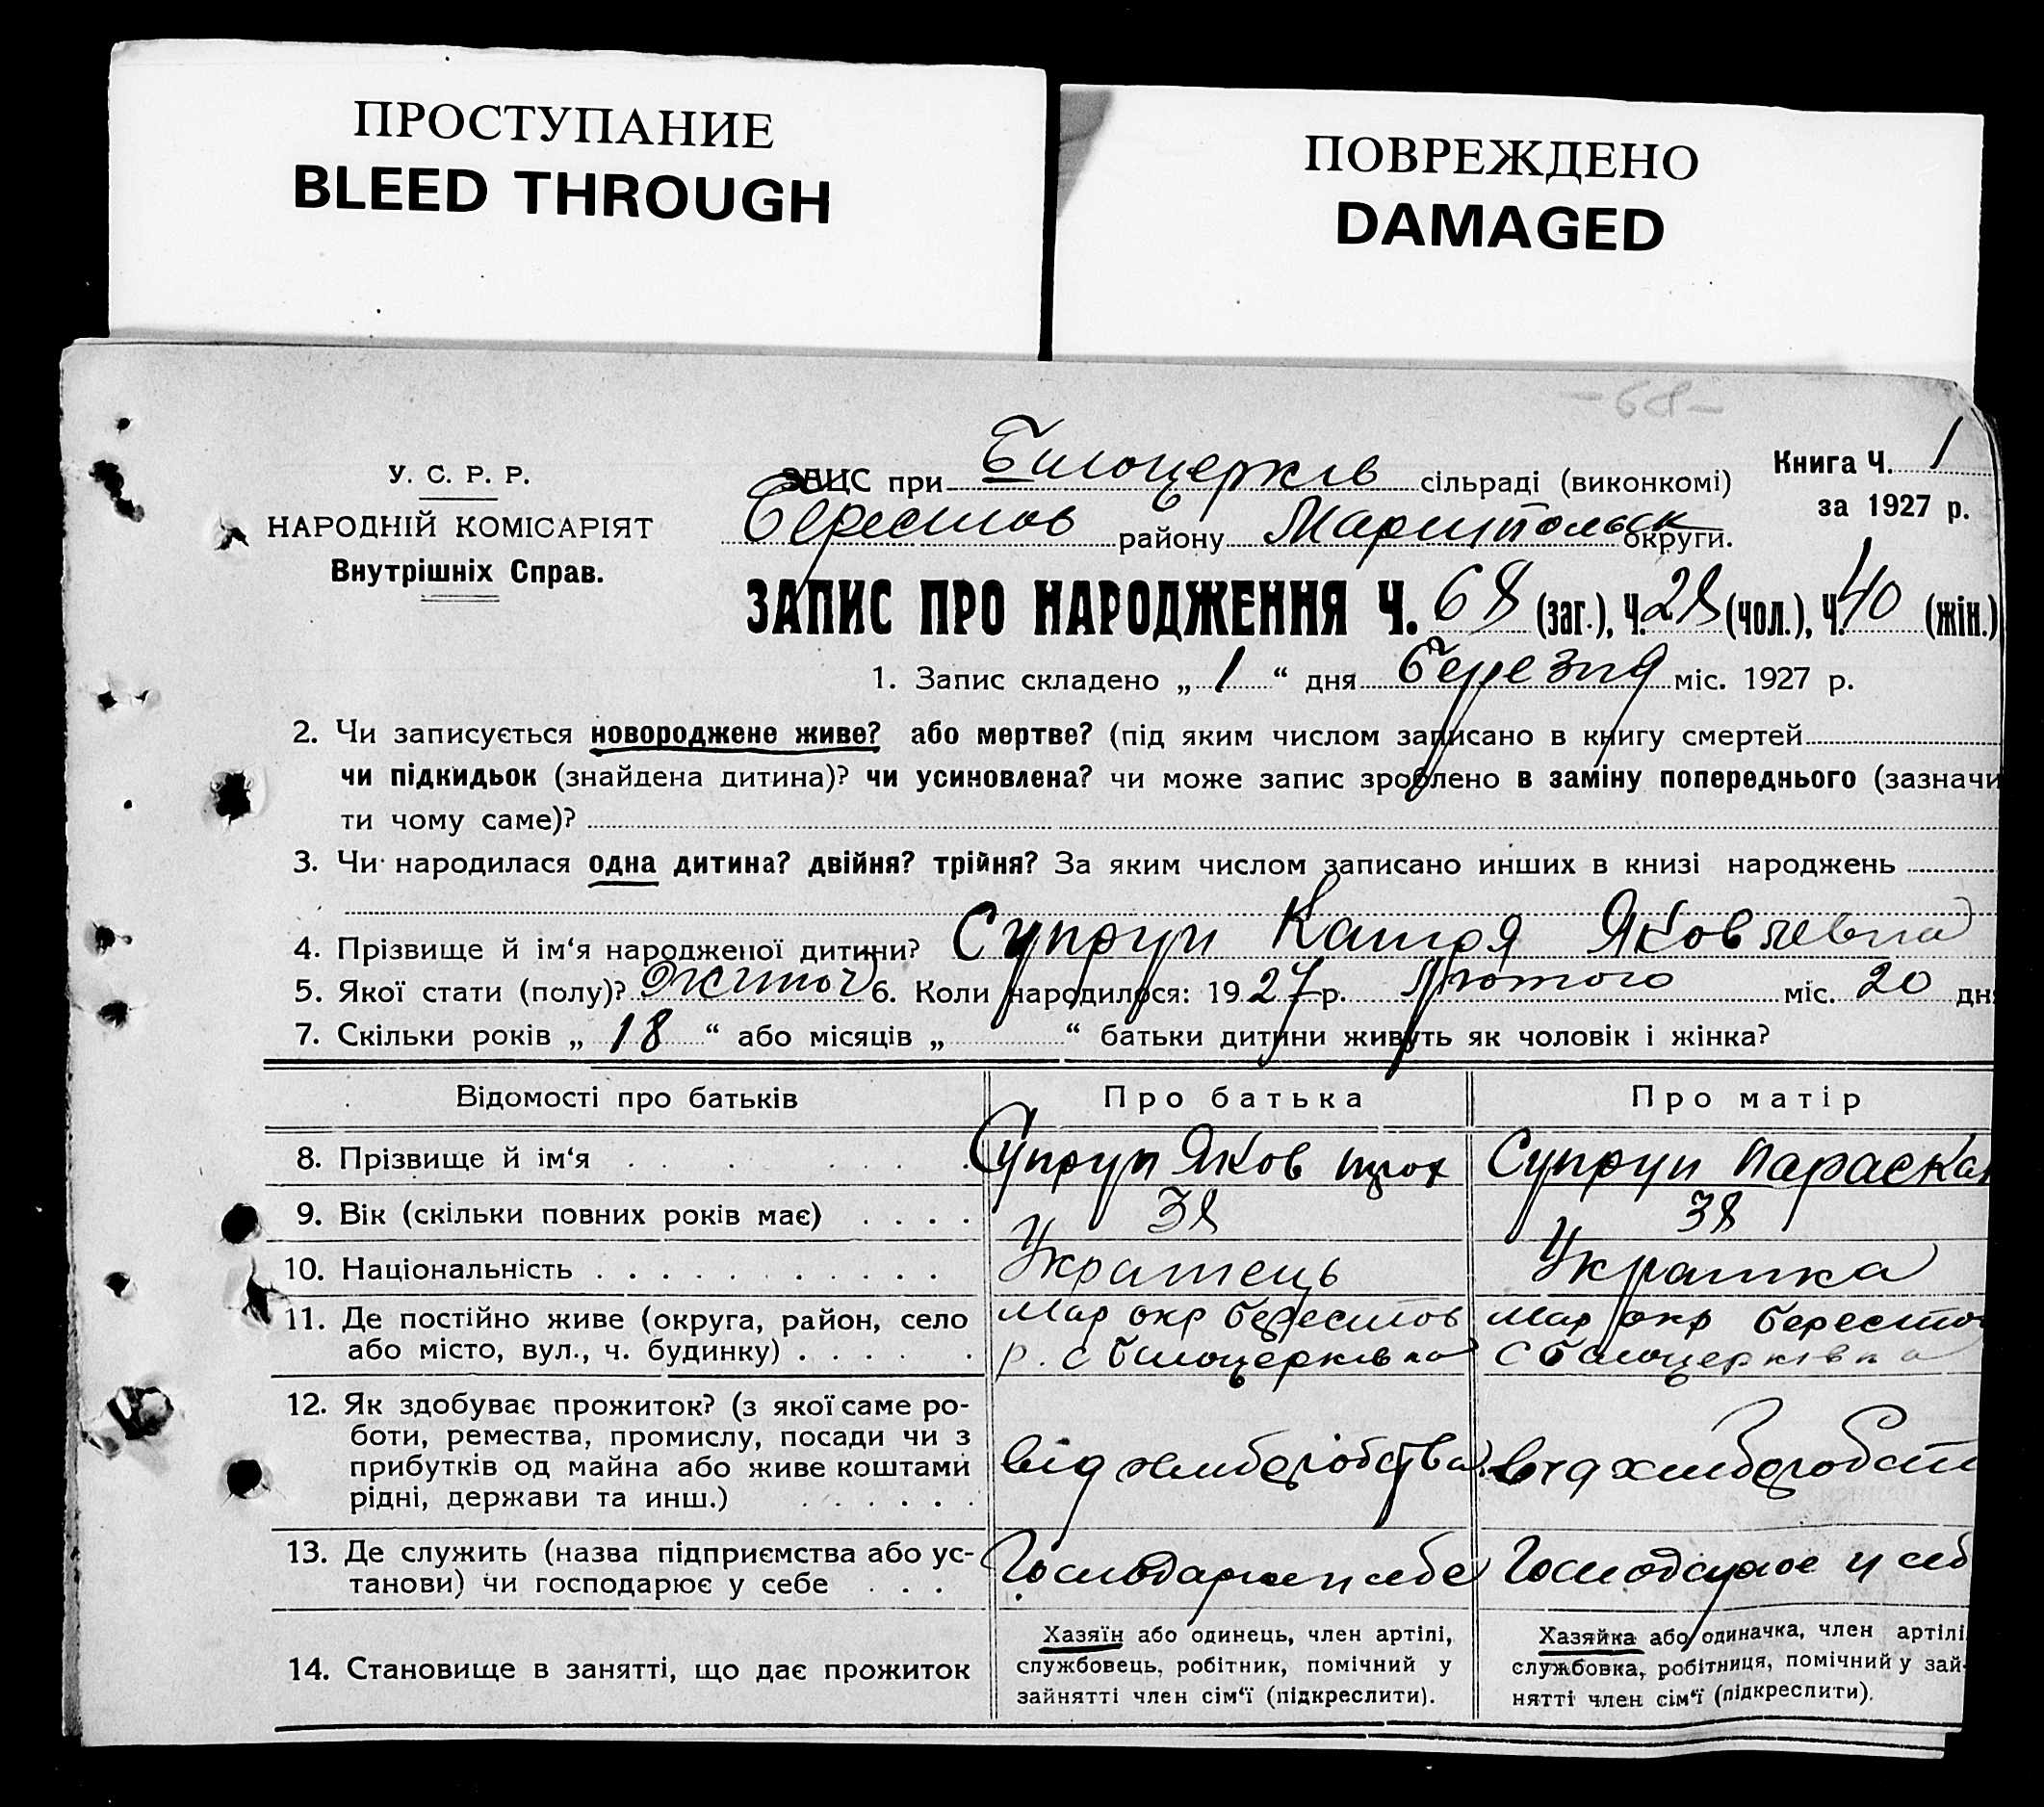 ПРОСТУПАНИЕ
BLEED THROUGH
ПОВРЕЖДЕНО
DAMAGED
-68-
У. С. Р. Р.
НАРОДНІЙ КОМІСАРІЯТ
Внутрішніх Справ.
ЗАЦС при Билоцерків сільраді (виконкомі)
Берестов району Мариупольськ округи.
Книга Ч. 1
за 1927 р.
ЗАПИС ПРО НАРОДЖЕННЯ Ч. 68 (заг.), Ч. 28 (чол.), Ч. 40 (жін.)
1. Запис складено „ 1 “ дня березня міс. 1927 р.
2. Чи записується новороджене живе? або мертве? (під яким числом записано в книгу смертей
чи підкидьок (знайдена дитина)? чи усиновлена? чи може запис зроблено в заміну попереднього (зазначи
ти чому саме)?
3. Чи народилася одна дитина? двійня? трійня? За яким числом записано инших в книзі народжень
4. Прізвище й ім‘я народженої дитини? Супрун Катря Яковлевна
5. Якої стати (полу)? жиноч 6. Коли народилося: 1927 р. Лютого міс. 20 дня
7. Скільки років „ 18 “ або місяців „ “ батьки дитини живуть як чоловік і жінка?
Відомості про батьків
Про батька
Про матір
8. Прізвище й ім‘я
Супрун Яков
Супрун Параска
9. Вік (скільки повних років має)
38
38
10. Національність
Украінець
Украінка
11. Де постійно живе (округа, район, село
або місто, вул., ч. будинку)
Мар окр Берестов
р. с Билоцерківка
Мар окр Берестов
с Билоцерківка
12. Як здобуває прожиток? (з якої саме ро-
боти, ремества, промислу, посади чи з
прибутків од майна або живе коштами
рідні, держави та инш.)
від хлиборобства
від хлиборобст
13. Де служить (назва підприємства або ус-
танови) чи господарює у себе
Господарює у себе
Господарює у себ
14. Становище в занятті, що дає прожиток
Хазяїн або одинець, член артілі,
службовець, робітник, помічний у
зайнятті член сім‘ї (підкреслити).
Хазяйка або одиначка, член артілі
службовка, робітниця, помічний у зай-
нятті член сім‘ї (підкреслити).